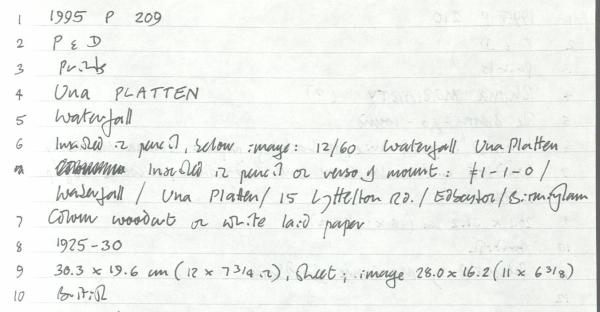 1 1995 P 209
2 P & D
3 Prints
4 Una PLATTEN
5 Waterfall
6 Inscribed in pencil, below image: 12/60 Waterfall Una Platten
Inscribed in pencil on verso of mount: £1-1-0 /
Waterfall / Una Platten / 15 Lyttelton Rd. / Edgbaston / Birmingham
7 Colour woodcut on white laid paper
8 1925-30
9 30.3 x 19.6 cm (12 x 7 3/4 in), sheet; image 28.0 x 16.2 (11 x 6 3/8)
10 British